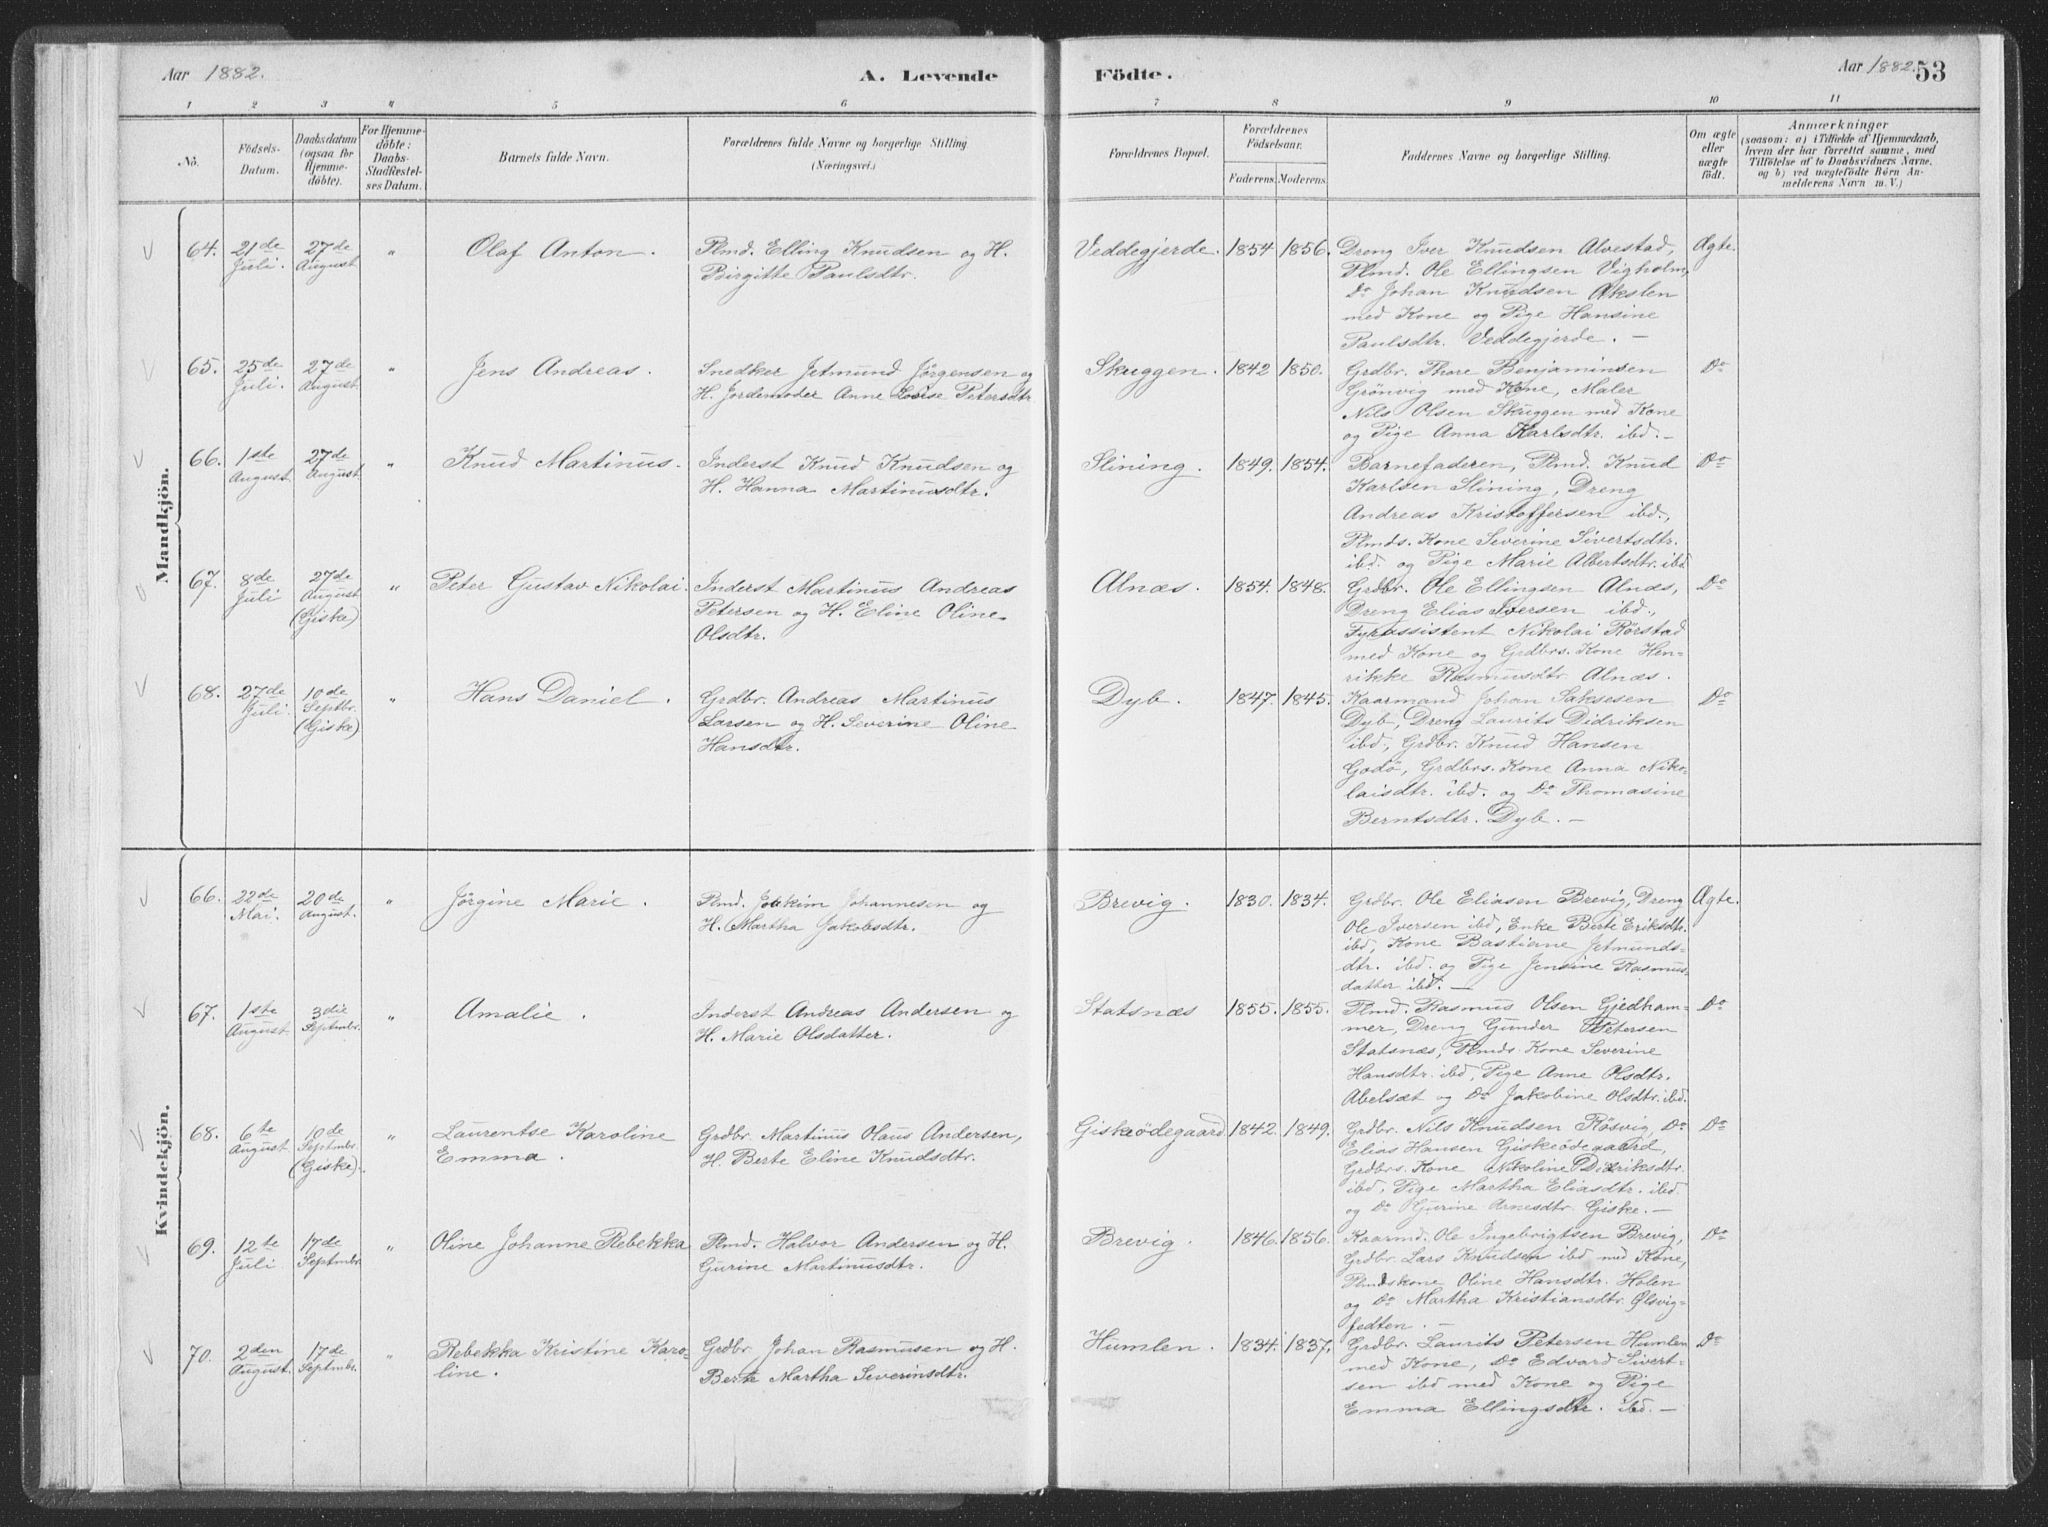 Aar 1882.
A. Levende
Födte.
Aar 1882.
53
1 2 3 4 5 6 7 8 9 10 11
No.
Födsels-
Datum.
Daabsdatum
(ogsaa for
Hjemme-
döbte).
For Hjemme-
döbte:
Daabs-
Stadfæstel-
ses Datum.
Barnets fulde Navn.
Forældrenes fulde Navne og borgerlige Stilling
(Næringsvei.)
Forældrenes Bopæl.
Forældrenes
Födselsaar.
Faderens. Moderens.
Faddernes Navne og borgerlige Stilling.
Om ægte
eller
uægte
födt.
Anmærkninger
(saasom: a) i Tilfælde af Hjemmedaab,
hvem der har forrettet samme, med
Tilföielse af to Daabsvidners Navne.
og b) ved uægtefödte Börn An-
melderens Navn m. V.)
Mandkjön.
64.
21de
Juli.
27de
August
"
Olaf Anton.
Plmd. Elling Knudsen og H.
Birgitte Paulsdtr.
Veddegjerde.
1854
1856.
Dreng Iver Knudsen Alvestad,
Plmd. Ole Ellingsen Vigholm,
Do Johan Knudsen Akslen
med Kone og Pige Hansine
Paulsdtr. Veddegjerde. —
Ægte.
65.
25de
Juli.
27de
August
"
Jens Andreas.
Snedker Jetmund Jörgensen og
H. Jordemoder Anne Lovise Petersdtr
Skuggen.
1842
1850.
Grdbr. Thore Benjaminsen
Grönvig med Kone, Maler
Nils Olsen Skuggen med Kone
og Pige Anna Karlsdtr. ibd. —
Do
66.
1ste
August
27de
August
"
Knud Martinus.
Inderst Knud Knudsen og
H. Hanna Martinusdtr.
Slining.
1849.
1854.
Barnefaderen, Plmd. Knud
Karlsen Slining, Dreng
Andreas Kristoffersen ibd.,
Plmds. Kone Severine Sivertsdtr.
ibd. og Pige Marie Albertsdtr. ibd
Do
67.
8de
Juli
27de
August
(Giske)
"
Peter Gustav Nikolai.
Inderst Martinus Andreas
Petersen og H. Eline Oline
Olsdtr.
Alnæs.
1854.
1848.
Grdbr. Ole Ellingsen Alnæs,
Dreng Elias Iversen ibd.,
Fyrassistent Nikolai Rörstad
med Kone og Grdbrs. Kone Hen-
rikke Rasmusdtr. Alnæs.
Do
68.
27de
Juli.
10de
Septbr.
(Giske)
"
Hans Daniel.
Grdbr. Andreas Martinus
Larsen og H. Severine Oline
Hansdtr.
Dyb.
1847.
1845.
Kaarmand Johan Saksesen
Dyb, Dreng Laurits Didriksen
ibd., Grdbr. Knud Hansen
Godö, Grdbrs. Kone Anna Niko-
laisdtr. ibd. og Do Thomasine
Berntsdtr. Dyb. —
Do
Kvindekjön.
66.
22de
Mai.
20de
August.
"
Jörgine Marie.
Plmd. Joakim Johannesen og
H. Martha Jakobsdtr.
Brevig.
1830.
1834.
Grdbr. Ole Eliasen Brevig, Dreng
Ole Iversen ibd, Enke Berte Eriksdtr.
ibd, Kone Bastiane Jetmunds-
dtr. ibd. og Pige Jensine Rasmus-
datter ibd. —
Ægte.
67.
1ste
August
3die
Septmbr.
"
Amalie.
Inderst Andreas Andersen og
H. Marie Olsdatter.
Statsnæs
1855.
1855.
Plmd. Rasmus Olsen Gjedham-
mer, Dreng Gunder Petersen
Statsnæs, Plmds. Kone Severine
Hansdtr. ibd, Pige Anne Olsdtr.
Abelsæt og Do Jakobine Olsdtr. ibd.
Do
68.
6te
August
10de
Septmbr.
(Giske).
"
Laurentse Karoline
Emma.
Grdbr. Martinus Olaus Andersen,
H. Berte Eline Knudsdtr.
Giskeödegaard
1842.
1849.
Grdbr. Nils Knudsen Rösvig, Do
Elias Hansen Giskeödegaard,
Grdbrs. Kone Nikoline Didriksdtr.
ibd, Pige Martha Eliasdtr. ibd.
og Do Gurine Arnesdtr. Giske. —
Do
69.
12te
Juli
17de
Septmbr.
"
Oline Johanne Rebekka
Plmd. Halvor Andersen og H.
Gurine Martinusdtr.
Brevig.
1846.
1856.
Kaarmd. Ole Ingebrigtsen Brevig,
Grdbr. Lars Knudsen ibd med Kone,
Plmdskone Oline Hansdtr. Holen
og Do Martha Kristiansdtr. Ølsvig-
fedten. —
Do
70.
2den
August.
17de
Septmbr.
"
Rebekka Kristine Karo-
line.
Grdbr. Johan Rasmusen og H.
Berte Martha Severinsdtr.
Humlen.
1834.
1837.
Grdbr. Laurits Petersen Humlen
med Kone, Do Edvard Sivert-
sen ibd med Kone og Pige
Emma Ellingsdtr. ibd. —
Do